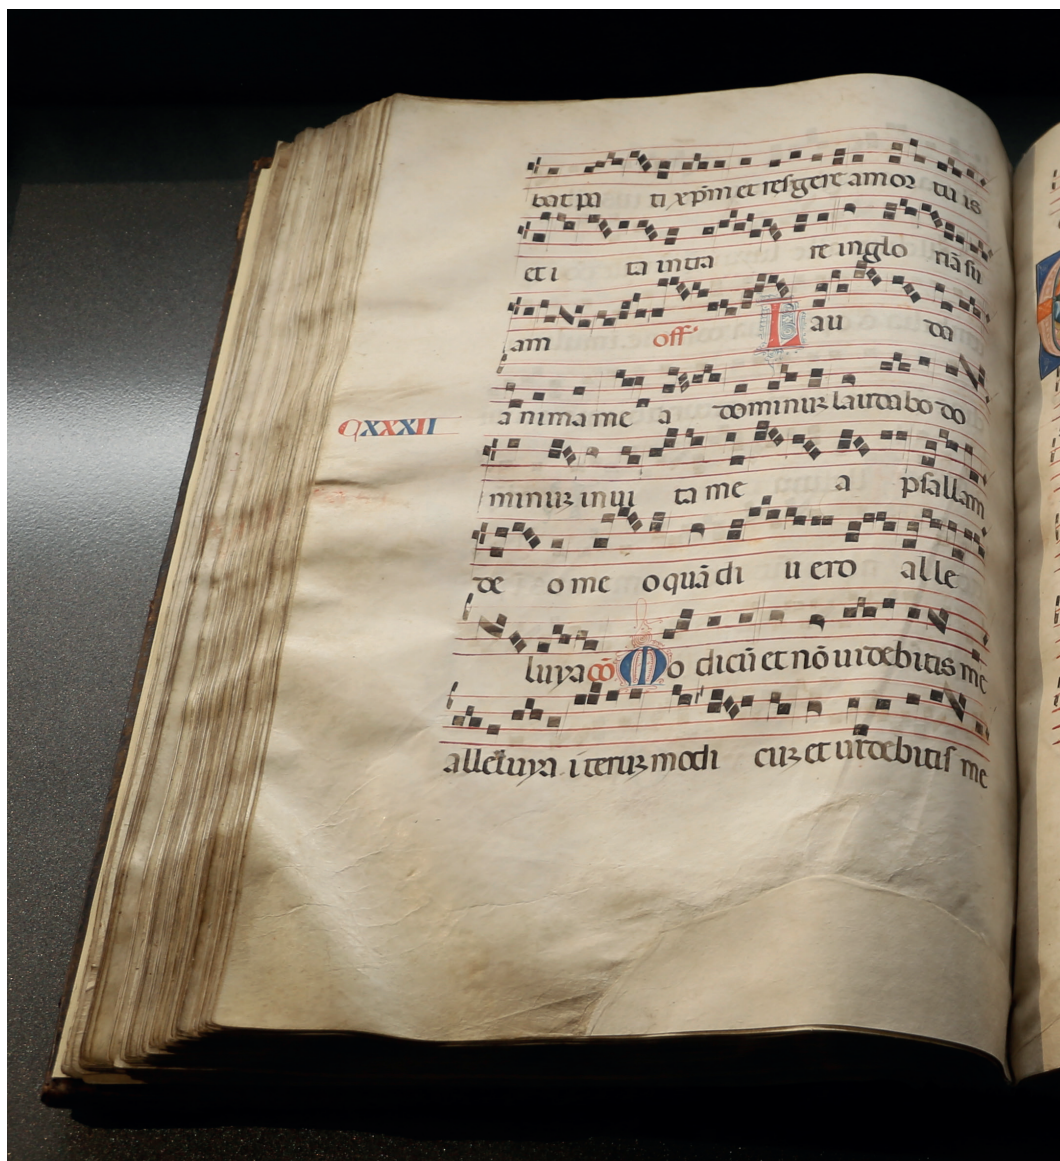 bat pa ti xpm et resurgere a mor tu is
et i ta intra re in glo riã su
am off. Lau da
a nima me a dominuz laudabo do
minuz in vi ta me a psallam
de o me o quã di u ero alle
luya cõ Mo dicũ et nõ videbitis me
alleluya iteruz modi cuz et videbitis me
CXXXII